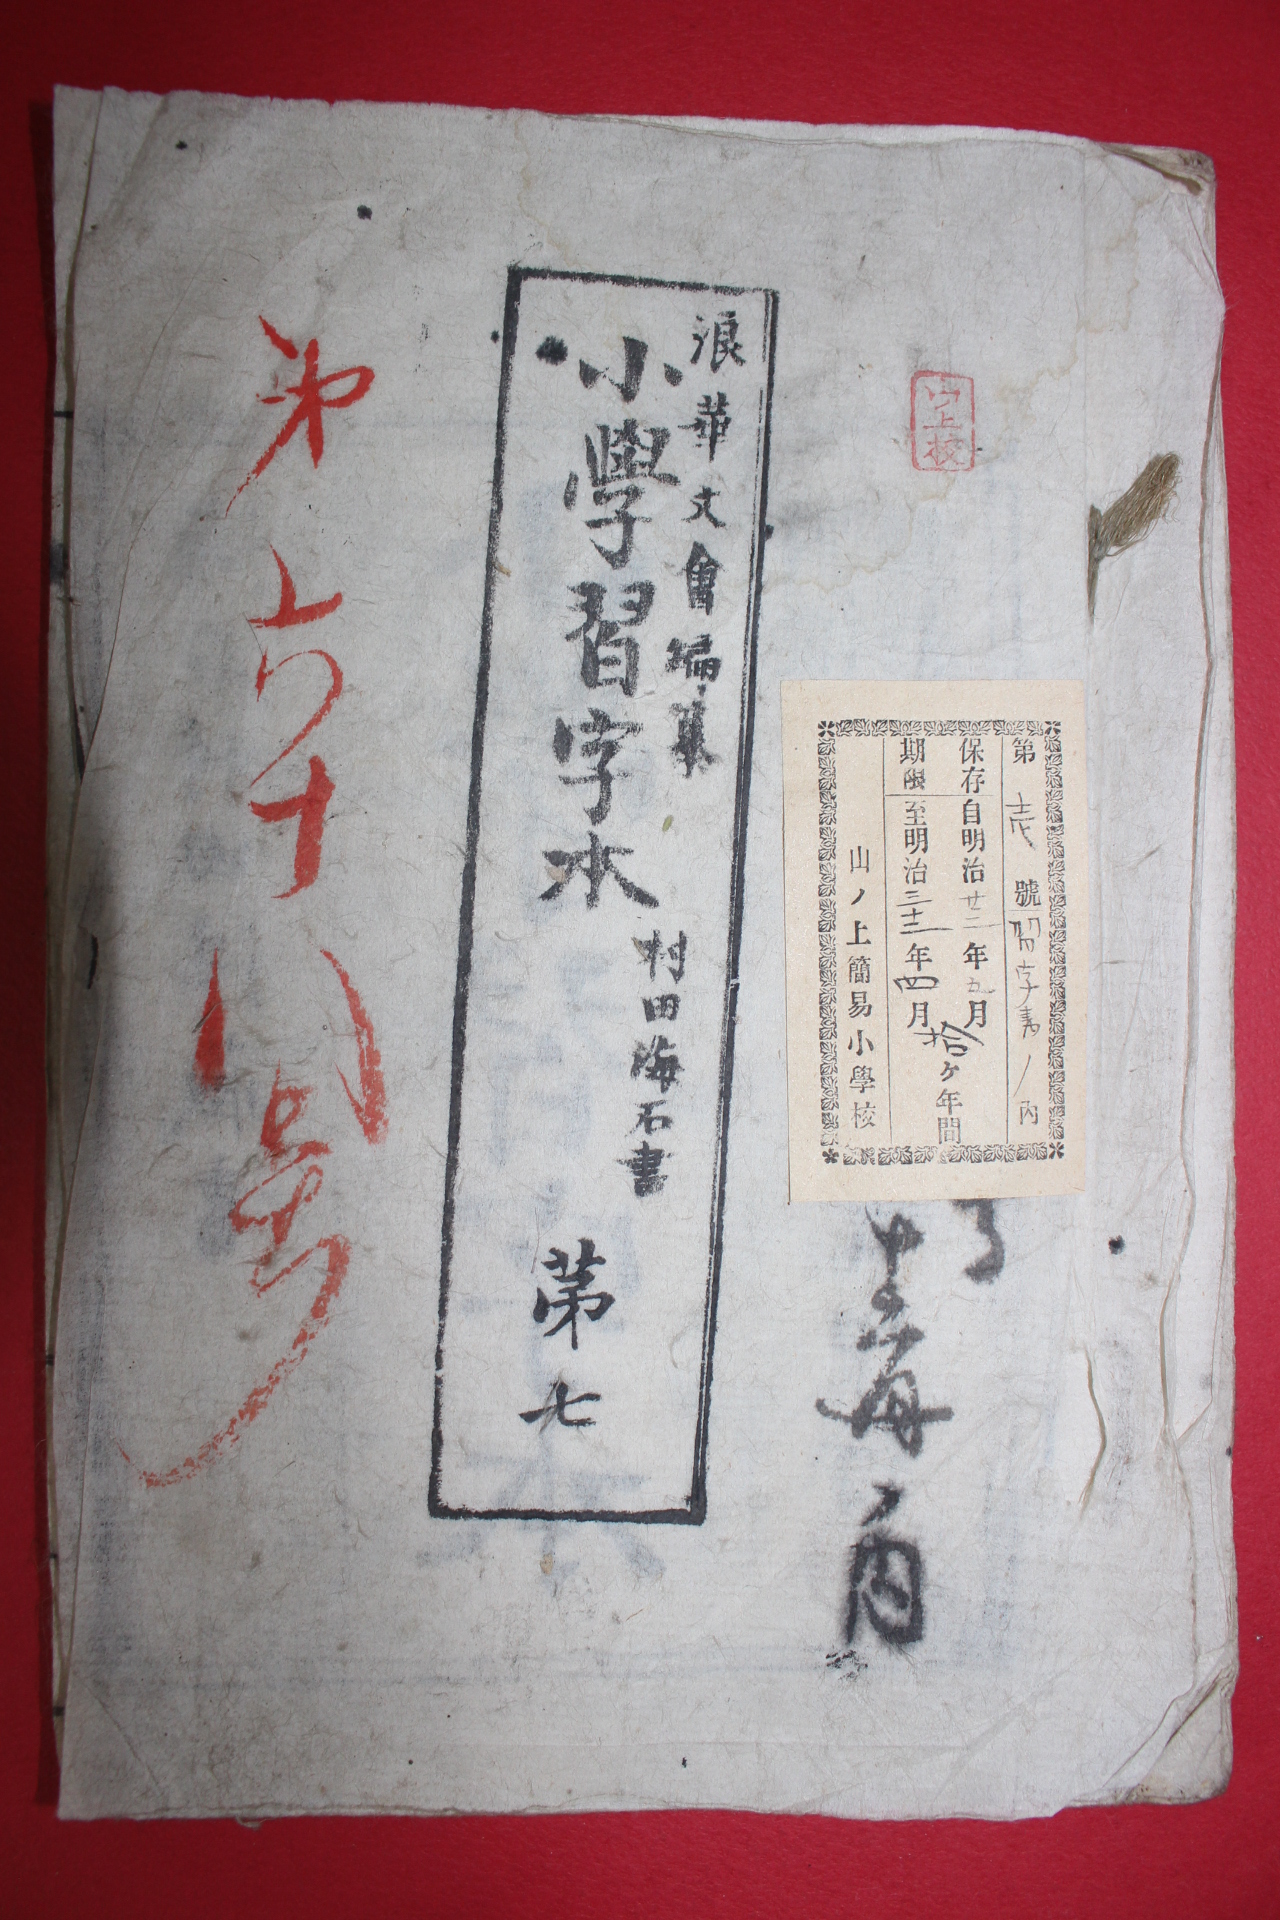 山上校
第 壱 號 習字書ノ内
保存自明治廿二年五月
期限至明治三十二年四月
拾ヶ年間
山ノ上簡易小學校
浪華文會編纂
小學習字本
村田海石書
第七
第六十八号